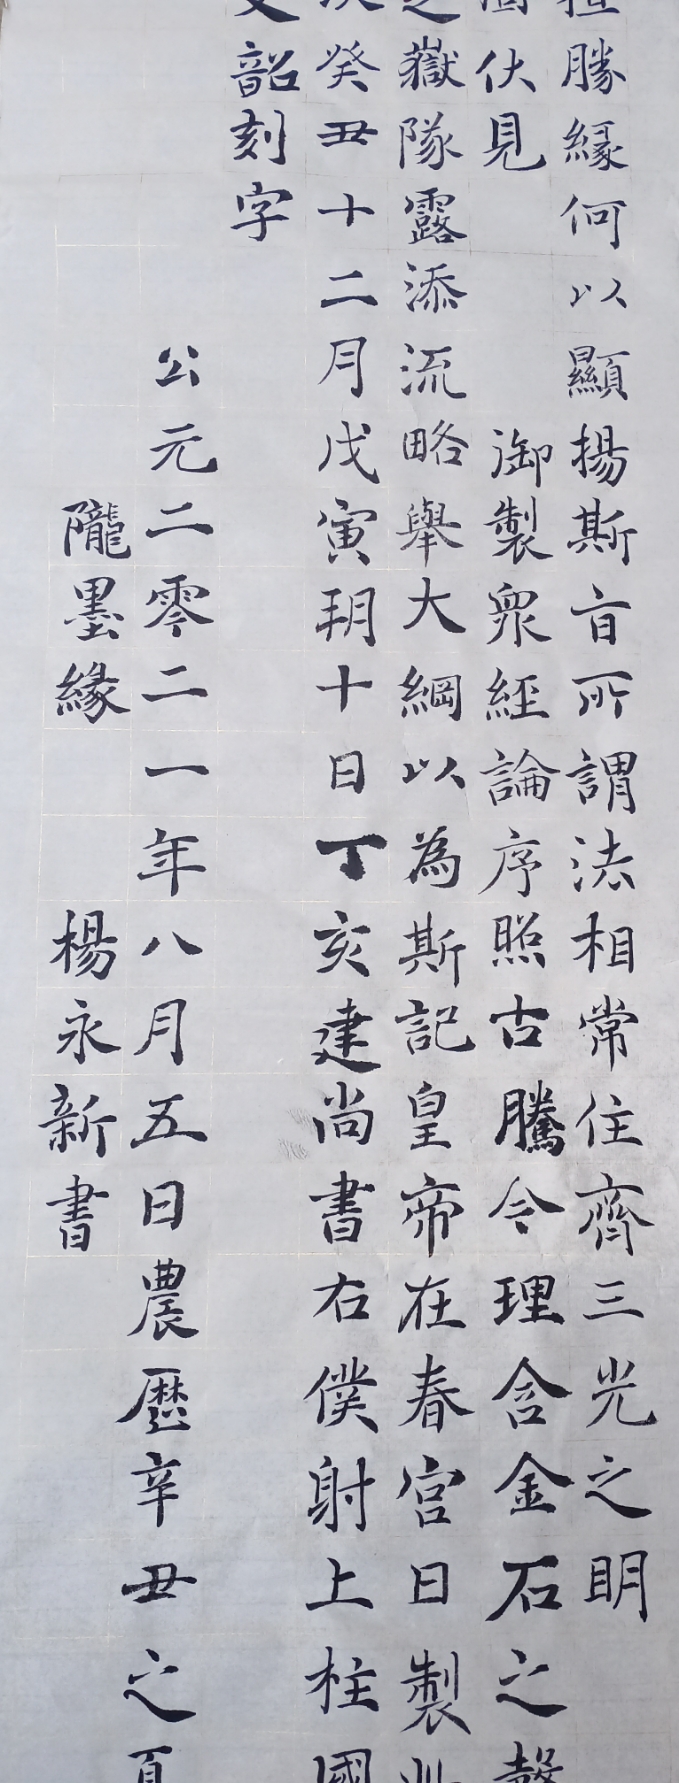 勝緣何以顯揚斯旨所謂法相常住齊三光之明
伏見御製眾經論序照古騰今理含金石之聲
之嶽隊露添流略舉大綱以為斯記皇帝在春宮日製此
癸丑十二月戊寅玥十日丁亥建尚書右僕射上柱國
文韶刻字
公元二零二一年八月五日農歷辛丑之夏
隴墨緣 楊永新書